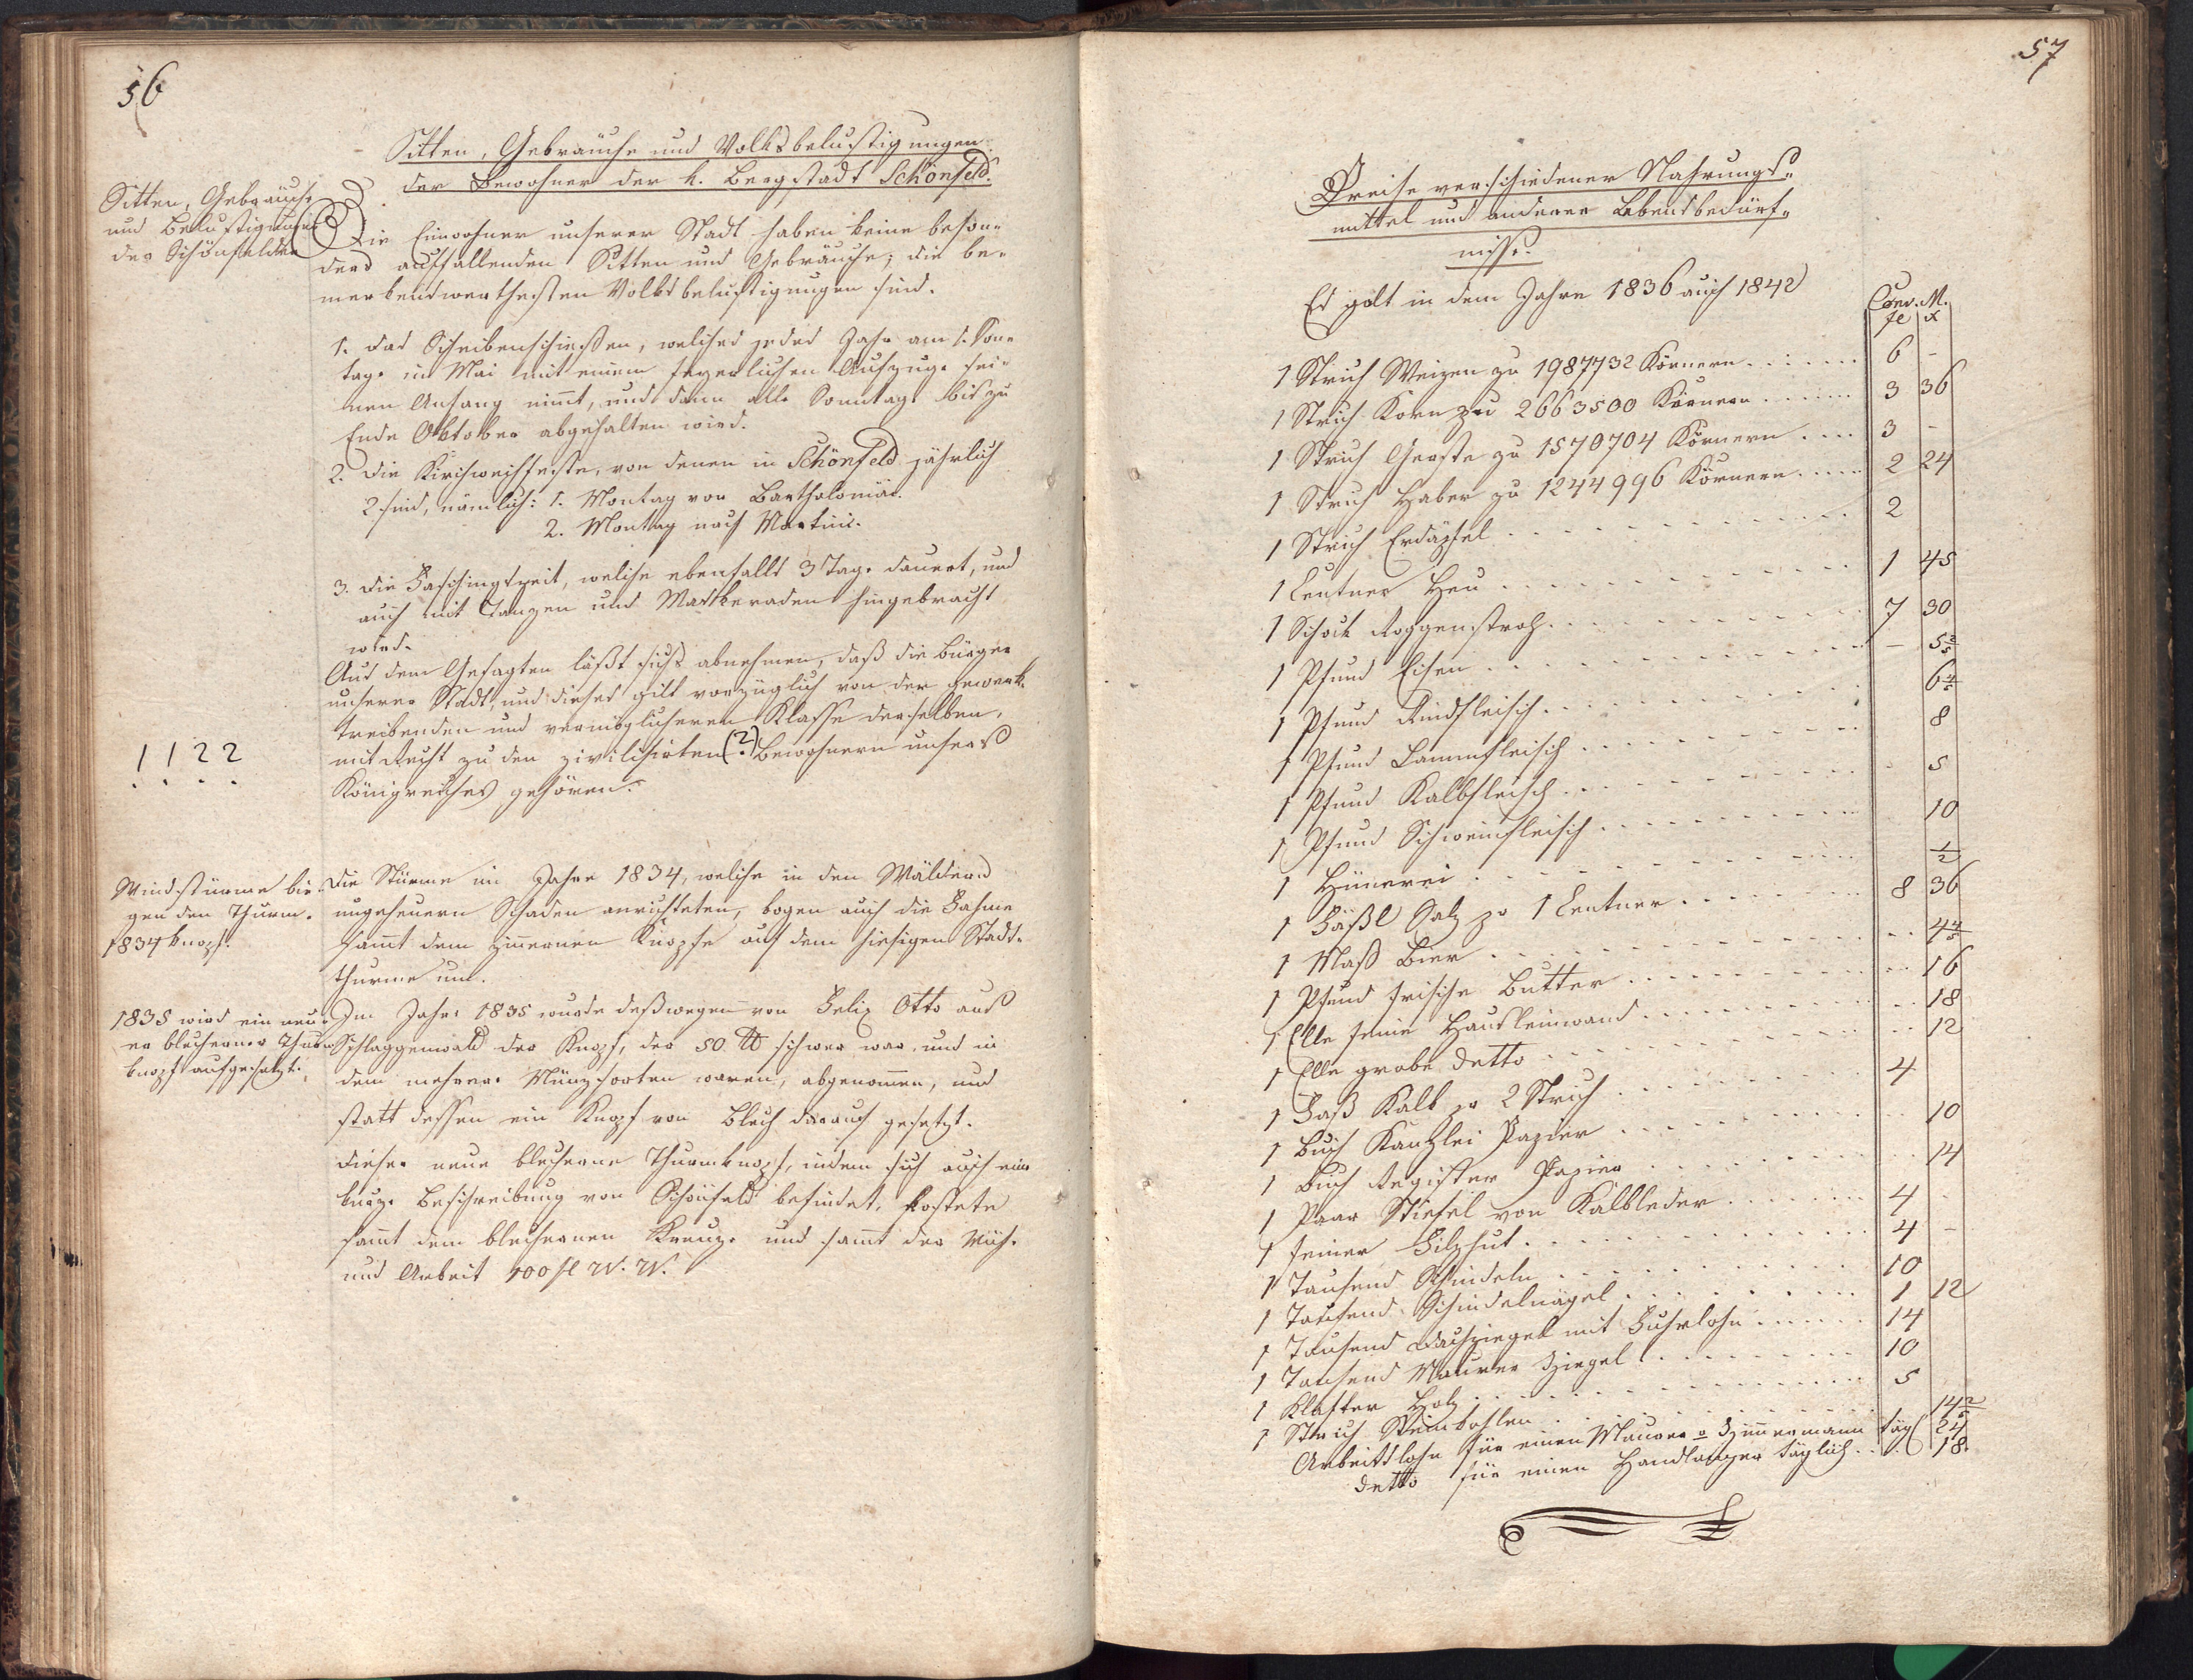 56
Sitten, Gebräuche und Volksbelustigungen
der Bewohner der k. Bergstadt Schönfeld.
Sitten, Gebräuche
und Belustigungen
der Schönfelder
Die Einwohner unserer Stadt haben keine beson-
ders auffallenden Sitten und Gebräuche; die be-
merkenswerthesten Volksbelustigungen sind.
1. das Scheibenschießen, welches jedes Jahr am 1. Son-
tage im Mai mit einem feyerlichen Aufzuge sei-
nen Anfang nimmt, und dann alle Sonntage bis zu
Ende Oktober abgehalten wird.
2. die Kirchweihfeste, von denen in Schönfeld jährlich
2 sind, nämlich: 1. Montag vor Bartholomäi.
2. Montag nach Martini.
3. die Faschingszeit, welche ebenfalls 3 Tage dauert, und
auch mit Tanzen und Maskeraden hingebracht
wird.
Aus dem Gesagten läßt sichs abnehmen, daß die Bürger
unserer Stadt, und dieses gilt vorzüglich von der gewerb-
treibenden und vermöglicheren Klasse derselben,
mit Recht zu den zivilisirten (?) Bewohnern unsers
Königreiches gehören.
! ! ? ?
Windstürme bie-
gen den Thurm-
1834 knopf.
Die Stürme im Jahre 1834, welche in den Wäldern
ungeheuern Schaden anrichteten, bogen auch die Fahne
sammt dem zinnernen Knopfe auf dem hiesigen Stadt-
thurme um.
1835 wird ein neu-
er blecherner Thurm
knopf aufgesetzt.
Im Jahre 1835 wurde deßwegen von Felix Otto aus
Schlaggenwald der Knopf, der 50 ℔ schwer war, und in
dem mehrere Münzsorten waren, abgenommen, und
statt dessen ein Knopf von Blech darauf gesetzt.
dieser neue blecherne Thurmknopf, indem sich auch eine
kurze Beschreibung von Schönfeld befindet, kostete
sammt dem blechernen Kreuze und sammt der Mühe
und Arbeit 100 fl W. W.
57
Preise verschiedener Nahrungs-
mittel und anderer Lebensbedürf-
nisse.
Es galt in dem Jahre 1836 auch 1842
Conv. M.
fl x
1 Strich Weizen zu 1987732 Körnern . . . . . . 6 -
1 Strich Korn zu 2663500 Körnern . . . . . . 3 36
1 Strich Gerste zu 1570704 Körnern . . . . 3 -
1 Strich Haber zu 1244996 Körnern . . . . . 2 24
1 Strich Erdäpfel . . . . . . . . . . 2
1 Centner Heu . . . . . . . . . . 1 45
1 Schock Roggenstroh . . . . . . . . . . 7 30
1 Pfund Eisen . . . . . . . . . . - 5 2/5
1 Pfund Rindfleisch . . . . . . . . . . 6 4/5
1 Pfund Lammfleisch . . . . . . . . . . 8
1 Pfund Kalbfleisch . . . . . . . . . . 5
1 Pfund Schweinfleisch . . . . . . . . . . 10
1 Hünerei . . . . . . . . . . 1/2
1 Fäßl Salz zu 1 Centner . . . . . . . 8 36
1 Maß Bier . . . . . . . . . . 4 4/5
1 Pfund frische Butter . . . . . . . . . . 16
1 Elle feine Hausleinwand . . . . . . . . . . 18
1 Elle grobe detto . . . . . . . . . . 12
1 Faß Kalk zu 2 Strich . . . . . . . . . . 4
1 Buch Kanzlei Papier . . . . . . . . . . 10
1 Buch Register Papier . . . . . . . . . . 14
1 Paar Stiefel von Kalbleder . . . . . . . 4 -
1 feiner Filzhut . . . . . . . . . . 4 -
1 Tausend Schindeln . . . . . . . . . . 10
1 Tausend Schindelnägel . . . . . . . . . . 1 12
1 Tausend Dachziegel mit Fuhrlohn . . . . . . 14
1 Tausend Maurer Ziegel . . . . . . . . . . 10
1 Klafter Holz . . . . . . . . . . 5
1 Strich Steinkohlen . . . . . . . . . . 14 2/5
Arbeitslohn für einen Maurer o Zimmermann täg 24
detto für einen Handlanger täglich . . 18